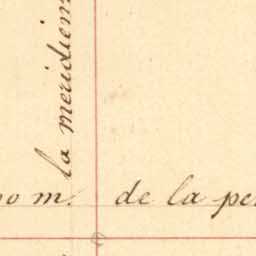 la meridien
m. de la per